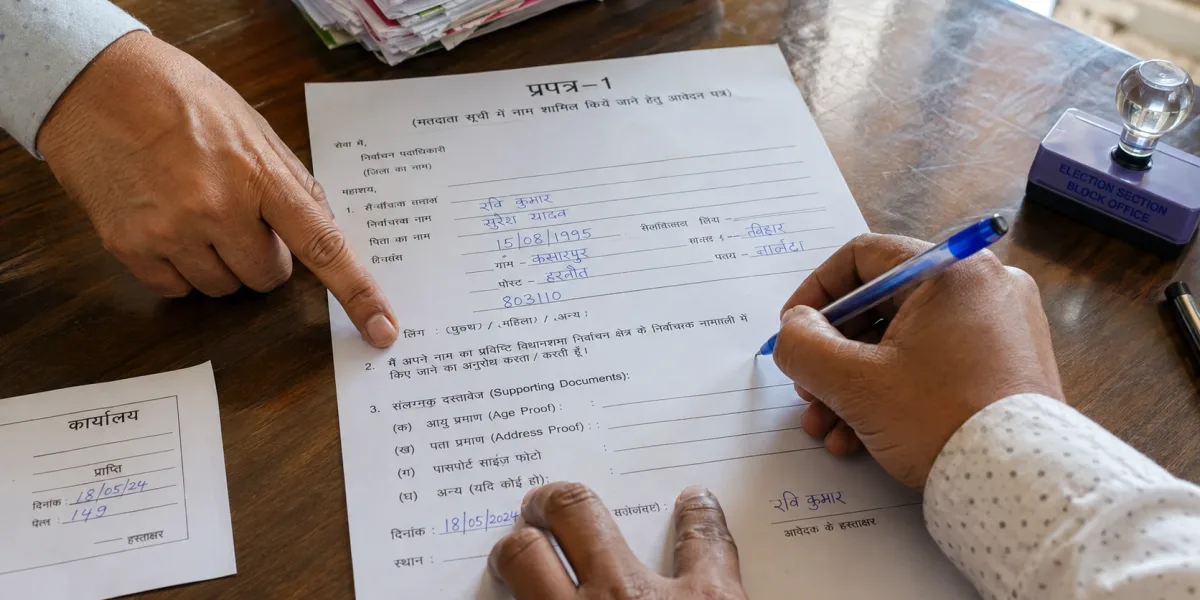 प्रपत्र–1
(मतदाता सूची में नाम शामिल किये जाने हेतु आवेदन पत्र)
सेवा में,
निर्वाचन पदाधिकारी
(जिला का नाम)
महाशय,
1.
रवि कुमार
निर्वाचरूव नाम सुरेश यादव
पिता का नाम 15/08/1995
गांम – कसारपुर
पोस्ट – हरनौत
803110
लिंग : / महिला) / अन्य ;
2. मैं अपने नाम का प्रविष्टि विधानशमा निर्वाचन क्षेत्र के निर्वाचरूक में
किए जाने का अनुरोध करता / करती हूँ।
3. संलग्नकृ दस्तावेज (Supporting Documents):
(क) आयु प्रमाण (Age Proof) : :
(ख) पता प्रमाण (Address Proof) : :
(ग) पासपोर्ट साइंज़ फोटो
(घ) अन्य (यदि कोई हो): :
दिनांक : 18/05/2024
स्थान :
रवि कुमार
आवेदक के हस्ताक्षर
कार्यालय
प्राप्ति
दिनांक : 18/05/24
149
हस्ताक्षर
ELECTION SECTION
BLOCK OFFICE